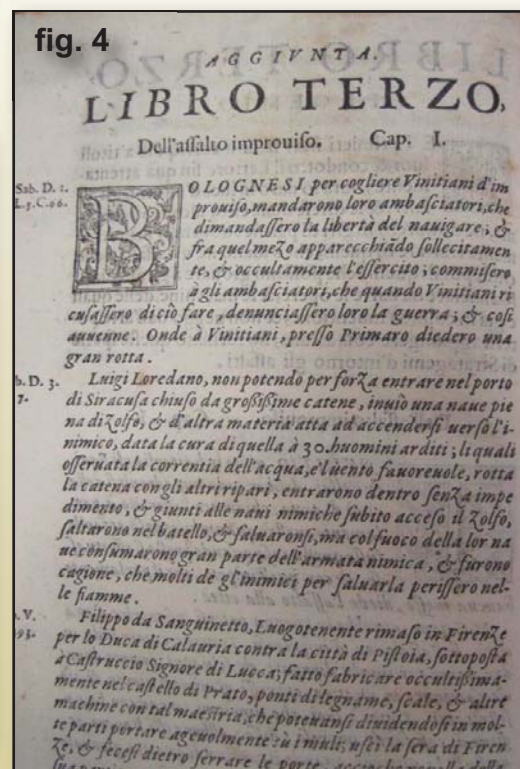 fig. 4
AGGIVNTA.
LIBRO TERZO,
Dell'aſſalto improuiſo. Cap. I.
Sab. D. 1.
L.3.C.06.
BOLOGNESI per cogliere Vinitiani d'im
prouiſo, mandarono loro ambaſciatori, che
dimandaſſero la libertà del nauigare; &
fra quel mezo apparecchiãdo ſollecitamen
te, & occultamente l'eſſercito; commiſero
à gli ambaſciatori, che quando Vinitiani ri
cuſaſſero di ciò fare, denunciaſſero loro la guerra; & coſi
auuenne. Onde à Vinitiani, preſſo Primaro diedero una
gran rotta.
b. D. 3.
7.
Luigi Loredano, non potendo per forza entrare nel porto
di Siracuſa chiuſo da groſſiſſime catene, inuiò una naue pie
na di Zolfo, & d'altra materia atta ad accenderſi uerſo l'i-
nimico, data la cura di quella à 30. huomini arditi; li quali
oſſeruata la correntia dell'acqua, e'l uento fauoreuole, rotta
la catena con gli altri ripari, entrarono dentro ſenza impe
dimento, & giunti alle naui nimiche ſubito acceſo il Zolfo,
ſaltarono nel batello, & ſaluaronſi, ma col fuoco della lor na
ue conſumarono gran parte dell'armata nimica, & furono
cagione, che molti de gl'inimici per ſaluarla periſſero nel-
le fiamme.
V.
93.
Filippo da Sanguinetto, Luogotenente rimaſo in Firenze
per lo Duca di Calauria contra la città di Piſtoia, ſottopoſta
à Caſtruccio Signore di Lucca; fatto fabricare occultiſſima-
mente nel caſtello di Prato, ponti di legname, ſcale, & altre
machine con tal maeſtria, che poteuanſi diuidendoſi in mol-
te parti portare ageuolmente sù i muli, uſcì la ſera di Firen
ze, & feceſi dietro ſerrare le porte, accioche